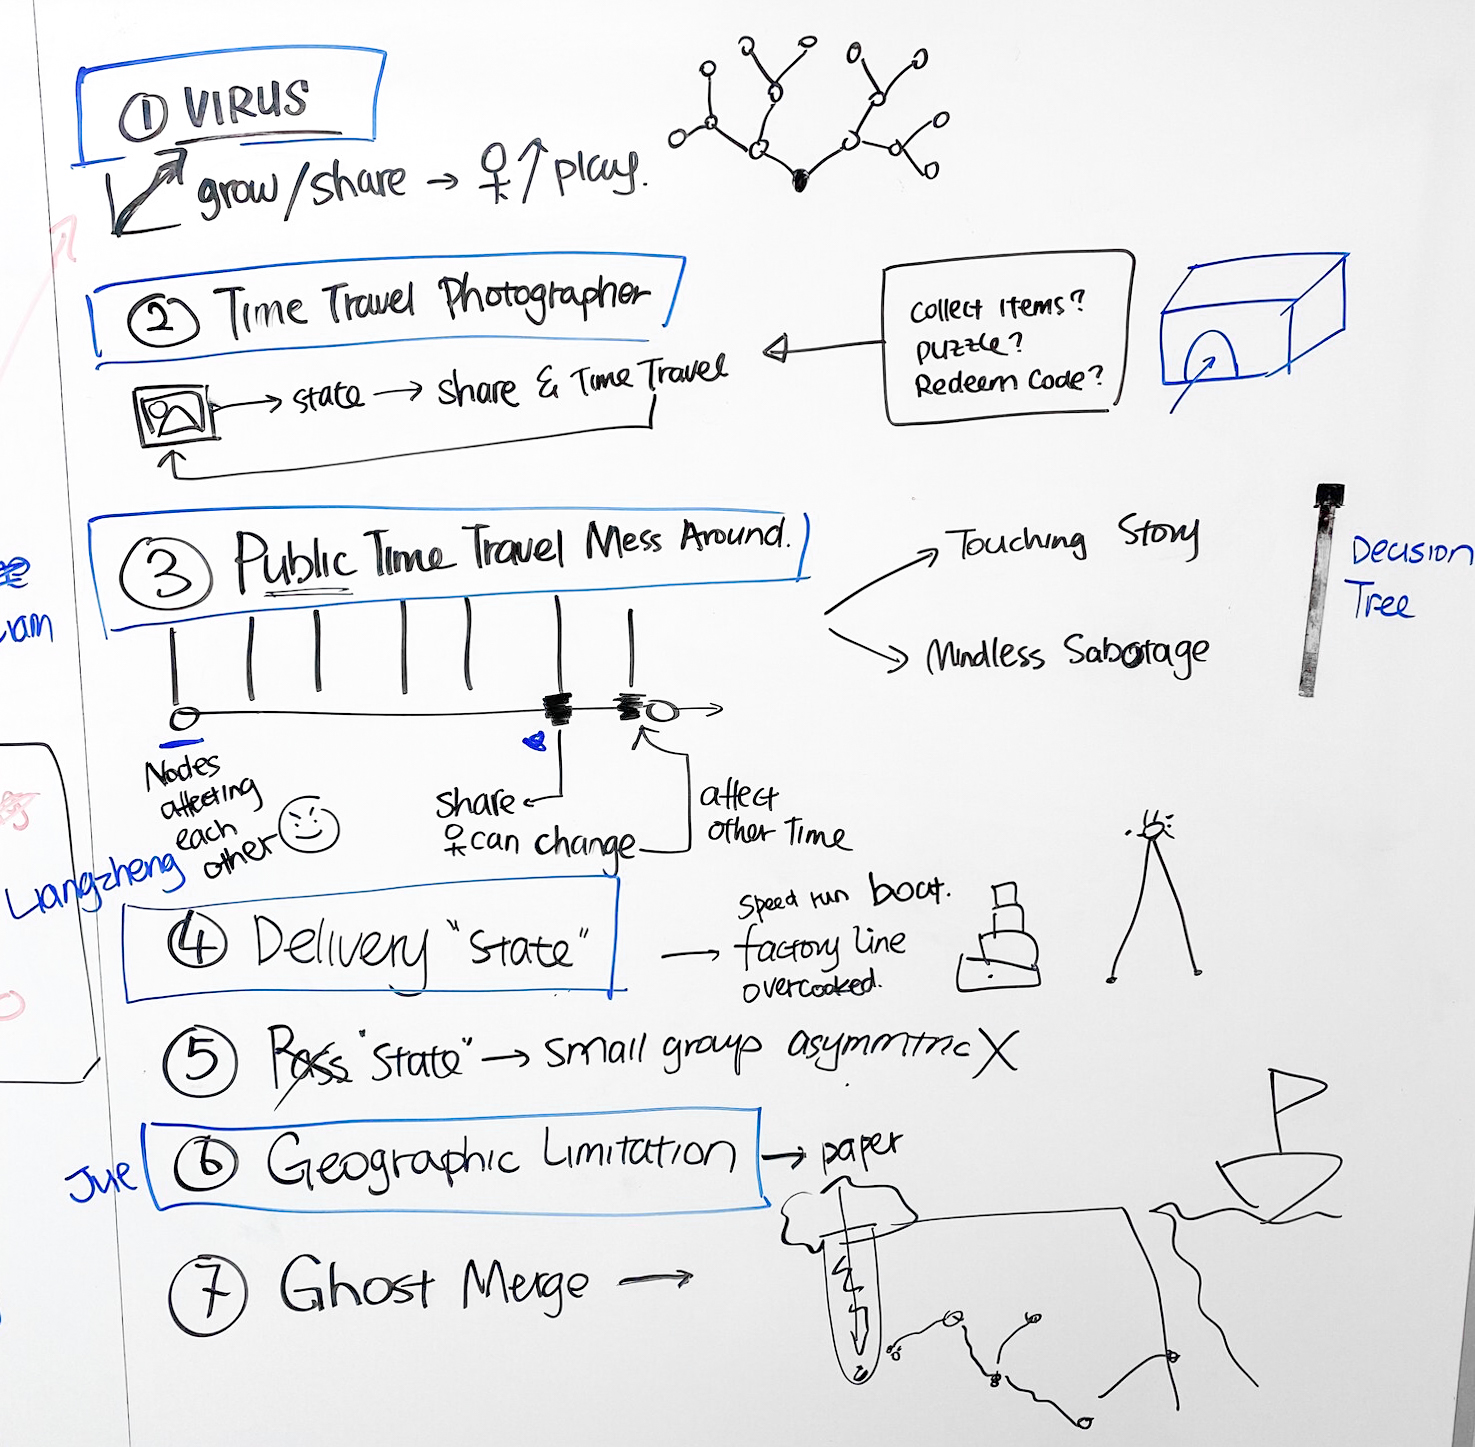 ① VIRUS
grow/share → ↑ play.
② Time Travel Photographer
→ state → share & Time Travel
Collect Items?
puzzle?
Redeem Code?
③ Public Time Travel Mess Around.
Touching Story
Mindless Sabotage
Decision
Tree
Nodes
affecting
each
other
share
can change
affect
other Time
Liangzheng
④ Delivery "State"
→ speed run boat.
factory line
overcooked.
⑤ Pass "State" → small group asymmtric X
Jue
⑥ Geographic Limitation → paper
⑦ Ghost Merge →